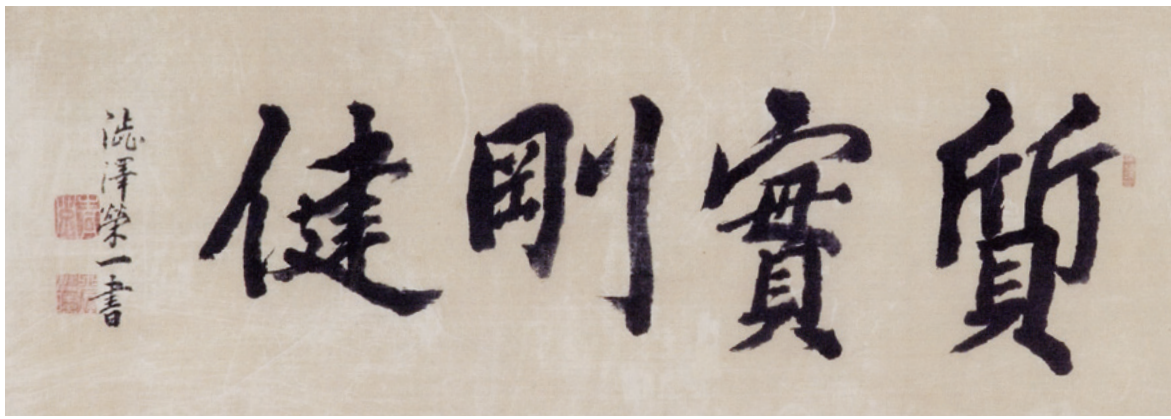 質實剛健
澁澤榮一書